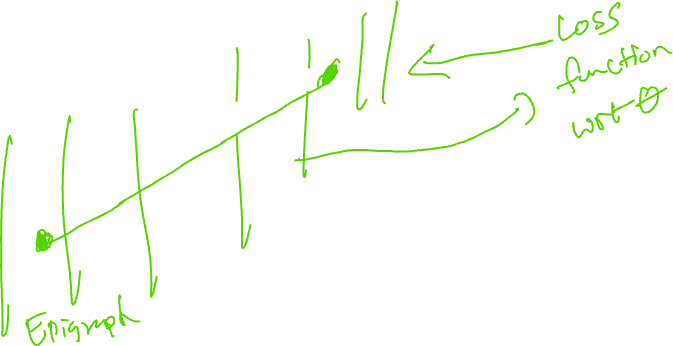 Loss
function
wrt θ
Epigraph